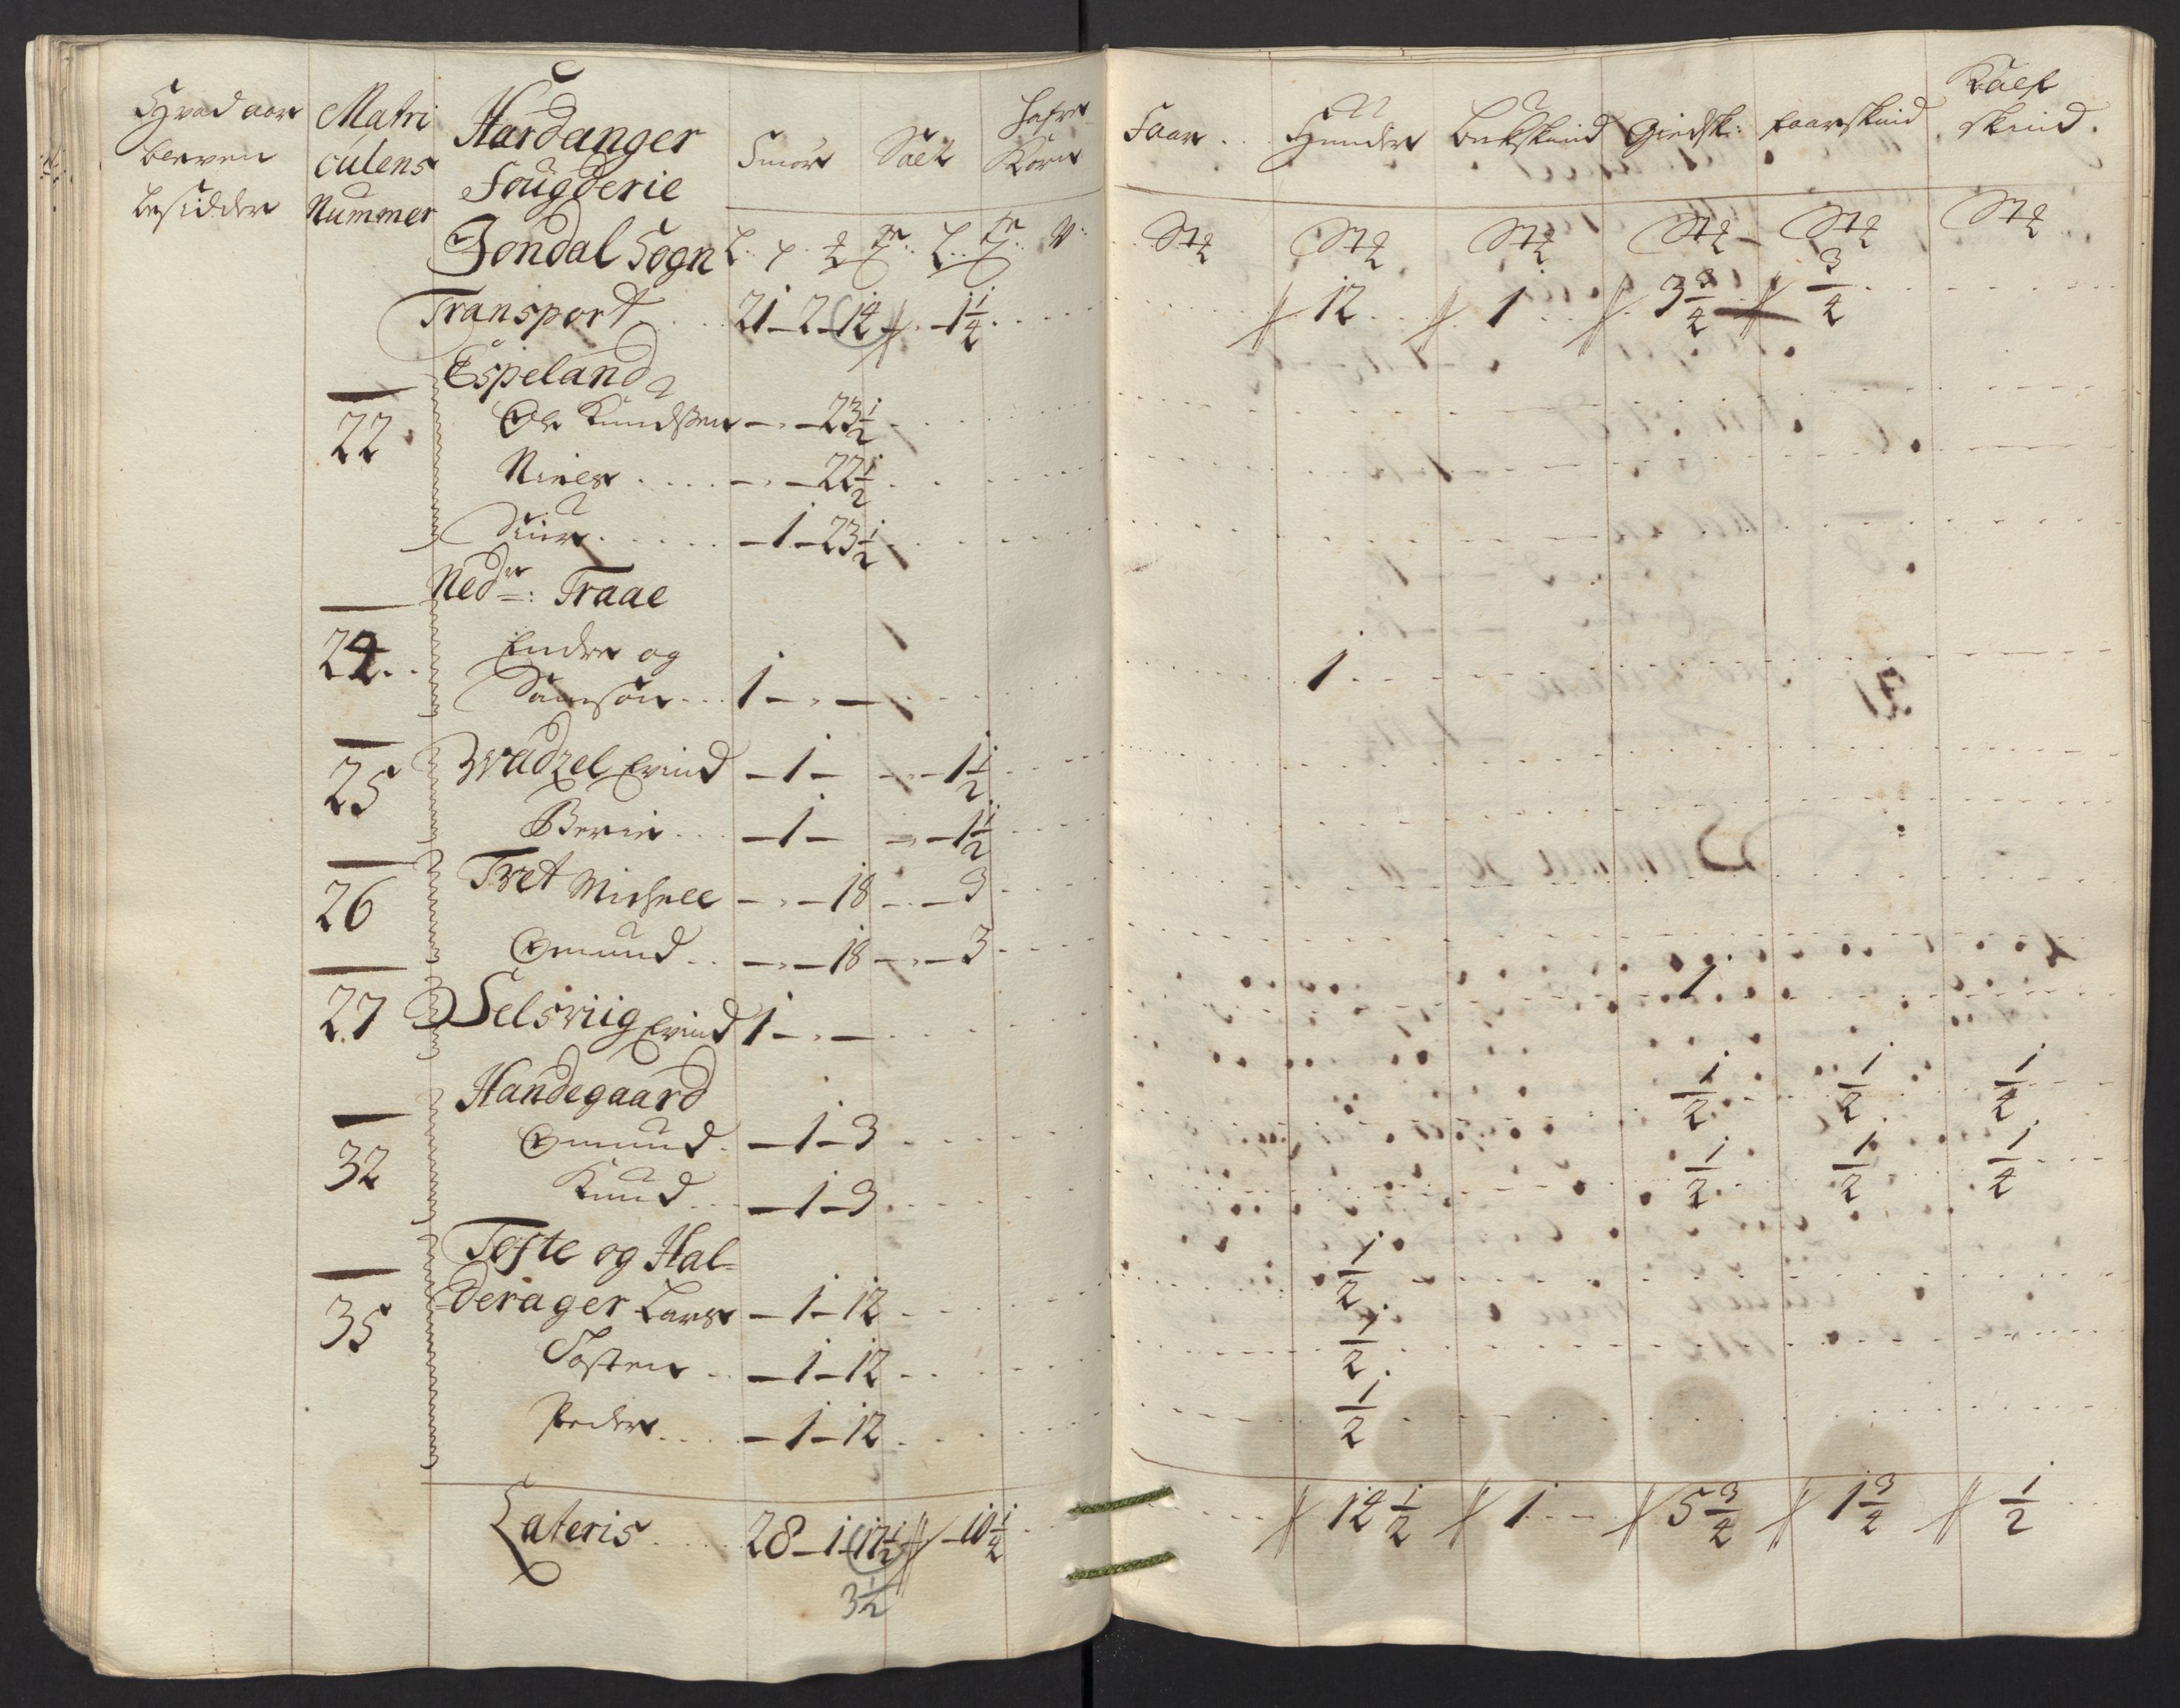 Hvad aar
bleven
besidder
Matri
culens
Nummer
Hardanger
Fougderie
Jondal Sogn
Smör Salt Hafre Korn
Faar Huuder Bukskind Giedsk: faarskind Kalf skind
Transport 21 - 2 - 14 - 1 1/4 12 1 3 3/4 3/4
Espeland
22 Ole Knudssen - - 23 1/2
Niels - - 22 1/2
Siur - 1 - 23 1/2
Nedr: Traae
24 Endre og
Samson 1 - - 1
25 Svadzel Evind - 1 - - 1 1/2
Berie - 1 - - 1 1/2
26 Tvet Michell - - 18 - 3
Omund - - 18 - 3
27 Selsviig Evind 1 - - 1
Handegaard
32 Omund - 1 - 3 1/2 1/2 1/4
Knud - 1 - 3 1/2 1/2 1/4
Tofte og Hal-
35 derager Lars - 1 - 12 1/2
Tosten - 1 - 12 1/2
Peder - 1 - 12 1/2
Lateris 28 - 1 - 17 1/2 - 10 1/4 14 1/2 1 5 3/4 1 3/4 1/2
3 1/2